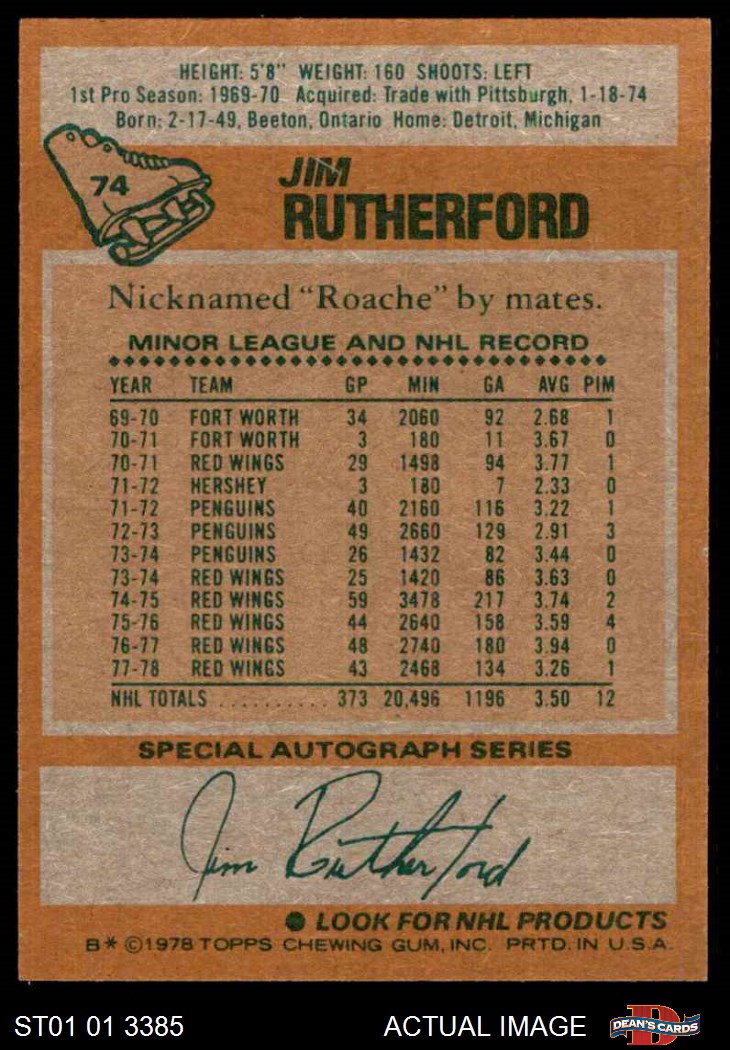 HEIGHT: 5'8" WEIGHT: 160 SHOOTS: LEFT
1st Pro Season: 1969-70 Acquired: Trade with Pittsburgh, 1-18-74
Born: 2-17-49, Beeton, Ontario Home: Detroit, Michigan
74
JIM
RUTHERFORD
Nicknamed "Roache" by mates.
MINOR LEAGUE AND NHL RECORD
YEAR TEAM GP MIN GA AVG PIM
69-70 FORT WORTH 34 2060 92 2.68 1
70-71 FORT WORTH 3 180 11 3.67 0
70-71 RED WINGS 29 1498 94 3.77 1
71-72 HERSHEY 3 180 7 2.33 0
71-72 PENGUINS 40 2160 116 3.22 1
72-73 PENGUINS 49 2660 129 2.91 3
73-74 PENGUINS 26 1432 82 3.44 0
73-74 RED WINGS 25 1420 86 3.63 0
74-75 RED WINGS 59 3478 217 3.74 2
75-76 RED WINGS 44 2640 158 3.59 4
76-77 RED WINGS 48 2740 180 3.94 0
77-78 RED WINGS 43 2468 134 3.26 1
NHL TOTALS .......... 373 20,496 1196 3.50 12
SPECIAL AUTOGRAPH SERIES
Jim Rutherford
● LOOK FOR NHL PRODUCTS
B* ©1978 TOPPS CHEWING GUM, INC. PRTD. IN U.S.A.
ST01 01 3385 ACTUAL IMAGE DEAN'S CARDS